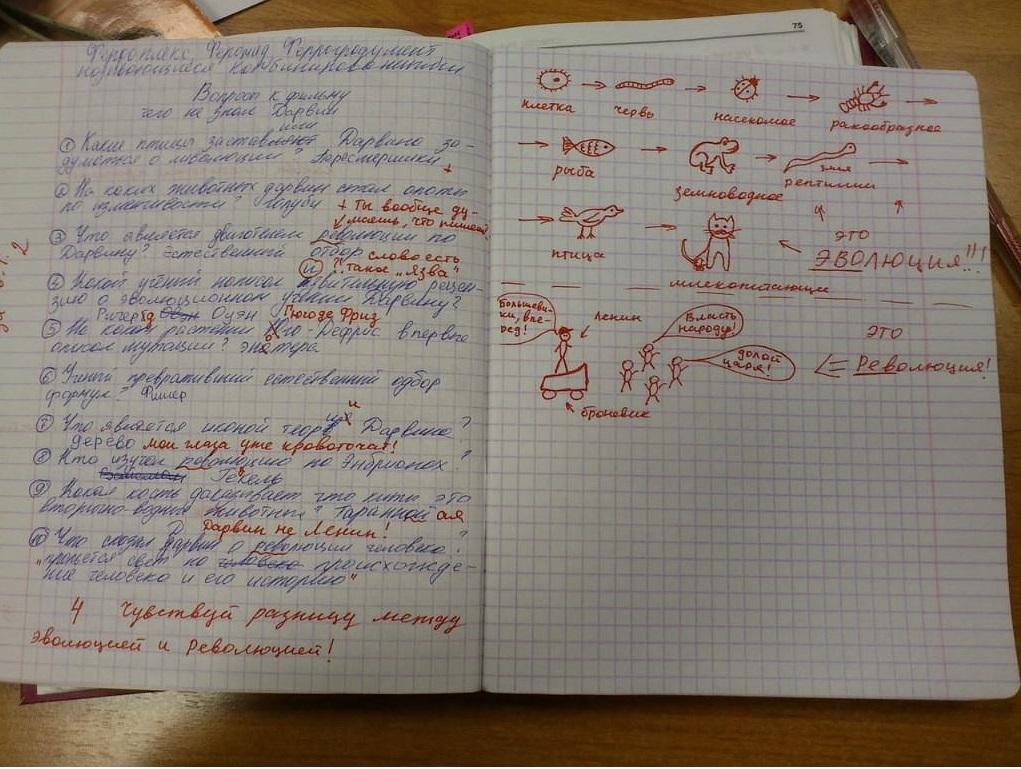 Вопросы к фильму
чего не знал Дарвин
или
① Какие птицы заставляют Дарвина за-
думаться о эволюции? Пересмешники
+
② На каких животных дарвин ставил опыты
по изменчивости? голуби + ты вообще ду-
маешь, что пишешь
③ Что является двигателем революции по
Дарвину? Естественный отбор слово есть
?! такое „Язва"
④ Какой учений написал язвительную рецен-
и
зию о эволюционном учении Дарвину?
Ричард Оуэн Гюйоде Фриз
⑤ На каком растении Гго-Дефриз впервые
описал мутации? энотера
⑥ Ученый превративший естественный одбор
формул? Фишер
⑦ Что является иконой теории Дарвина?
дерево мои глаза уже кровоточат!
⑧ Кто изучал революцию по Энбрионах?
Гекель
⑨ Какая кость доказывает что киты это
вторично-водние животные? Таранной ая
Дарвин не Ленин!
⑩ Что сказал дарвин о революции человека?
"прольется свет на происхожде-
ние человека и его историю"
4 Чувствуй разницу между
эволюцией и Революцией!
75
клетка червь насекомое ракообразное
рыба земноводное змея рептилии
птица
это
ЭВОЛЮЦИЯ!!!
млекопитающие
большеви-
ки, впе-
ред!
Ленин
Власть
народу!
долой
царя!
броневик
это
Революция!